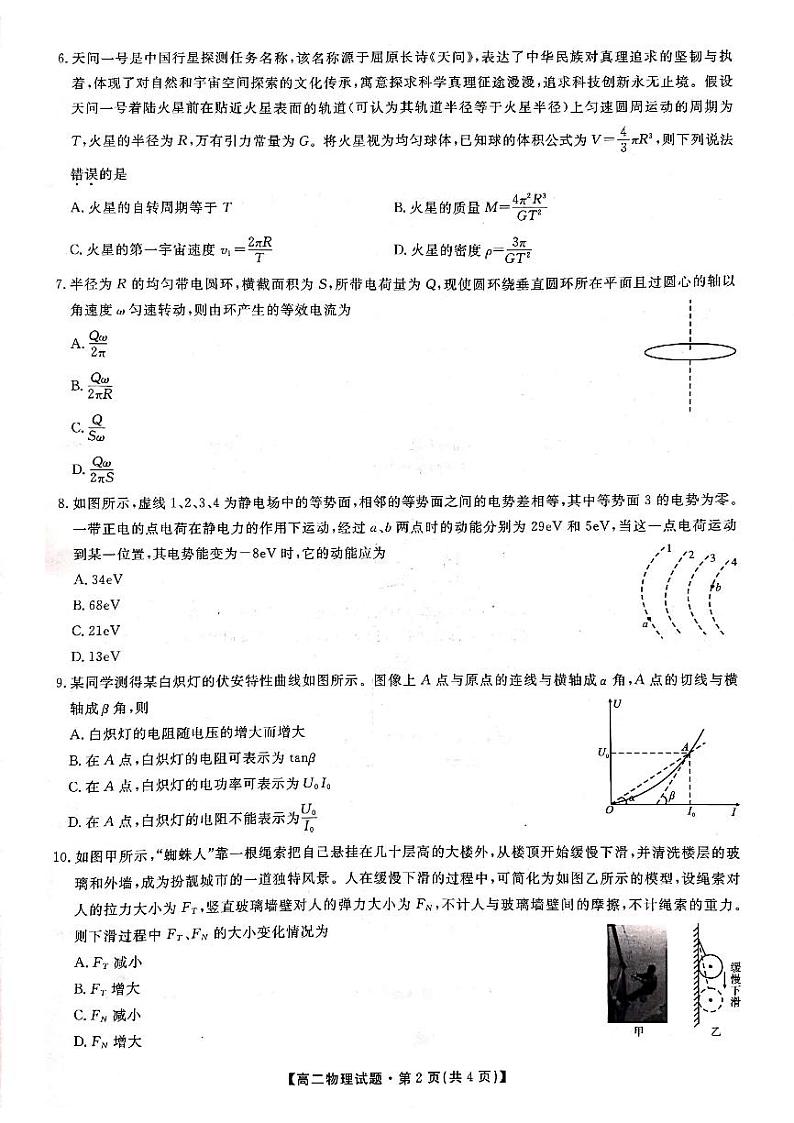 6. 天问一号是中国行星探测任务名称,该名称源于屈原长诗《天问》,表达了中华民族对真理追求的坚韧与执
着,体现了对自然和宇宙空间探索的文化传承,寓意探求科学真理征途漫漫,追求科技创新永无止境。假设
天问一号着陆火星前在贴近火星表面的轨道(可认为其轨道半径等于火星半径)上匀速圆周运动的周期为
T,火星的半径为 R,万有引力常量为 G。将火星视为均匀球体,已知球的体积公式为 V=4/3 πR³,则下列说法
错误的是
A. 火星的自转周期等于 T B. 火星的质量 M=4π²R³/GT²
C. 火星的第一宇宙速度 v₁=2πR/T D. 火星的密度 ρ=3π/GT²
7. 半径为 R 的均匀带电圆环,横截面积为 S,所带电荷量为 Q,现使圆环绕垂直圆环所在平面且过圆心的轴以
角速度 ω 匀速转动,则由环产生的等效电流为
A. Qω/2π
B. Qω/2πR
C. Q/Sω
D. Qω/2πS
8. 如图所示,虚线 1、2、3、4 为静电场中的等势面,相邻的等势面之间的电势差相等,其中等势面 3 的电势为零。
一带正电的点电荷在静电力的作用下运动,经过 a、b 两点时的动能分别为 29eV 和 5eV,当这一点电荷运动
到某一位置,其电势能变为-8eV 时,它的动能应为
A. 34eV
B. 68eV
C. 21eV
D. 13eV
1 2 3 4
a b
9. 某同学测得某白炽灯的伏安特性曲线如图所示。图像上 A 点与原点的连线与横轴成 α 角,A 点的切线与横
轴成 β 角,则
A. 白炽灯的电阻随电压的增大而增大
B. 在 A 点,白炽灯的电阻可表示为 tanβ
C. 在 A 点,白炽灯的电功率可表示为 U₀I₀
D. 在 A 点,白炽灯的电阻不能表示为U₀/I₀
U
U₀ A
O α β I₀ I
10. 如图甲所示,“蜘蛛人”靠一根绳索把自己悬挂在几十层高的大楼外,从楼顶开始缓慢下滑,并清洗楼层的玻
璃和外墙,成为扮靓城市的一道独特风景。人在缓慢下滑的过程中,可简化为如图乙所示的模型,设绳索对
人的拉力大小为 F_T,竖直玻璃墙壁对人的弹力大小为 F_N,不计人与玻璃墙壁间的摩擦,不计绳索的重力。
则下滑过程中 F_T、F_N 的大小变化情况为
A. F_T 减小
B. F_T 增大
C. F_N 减小
D. F_N 增大
缓慢下滑
甲 乙
【高二物理试题·第 2 页(共 4 页)】